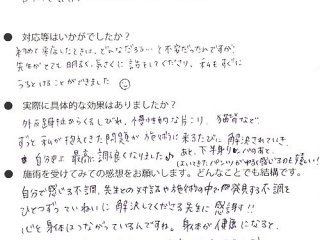 ● 対応等はいかがでしたか?
初めて来店したときは、どんなだろう…と不安だったんですが、
先生がとても明るく、気さくに話をしてくださり、私もすぐに
うちとけることができました ☺
● 実際に具体的な効果はありましたか?
外反母趾からくるしびれ、慢性的な肩こり、猫背など、
ずっと私が抱えてきた問題が施術に来るたびに解決されていき、
今 自分史上 最高に調子良くなりました♪
あと、下半身
● 施術を受けてみての感想をお願いします。どんなことでも結構です。
自分で感じる不調、先生との対話や施術の中で再発見する不調を
ひとつずつ ていねいに 解決してくださる先生に 感謝!!
心と身体はつながっているんですね。身体が健康になると、